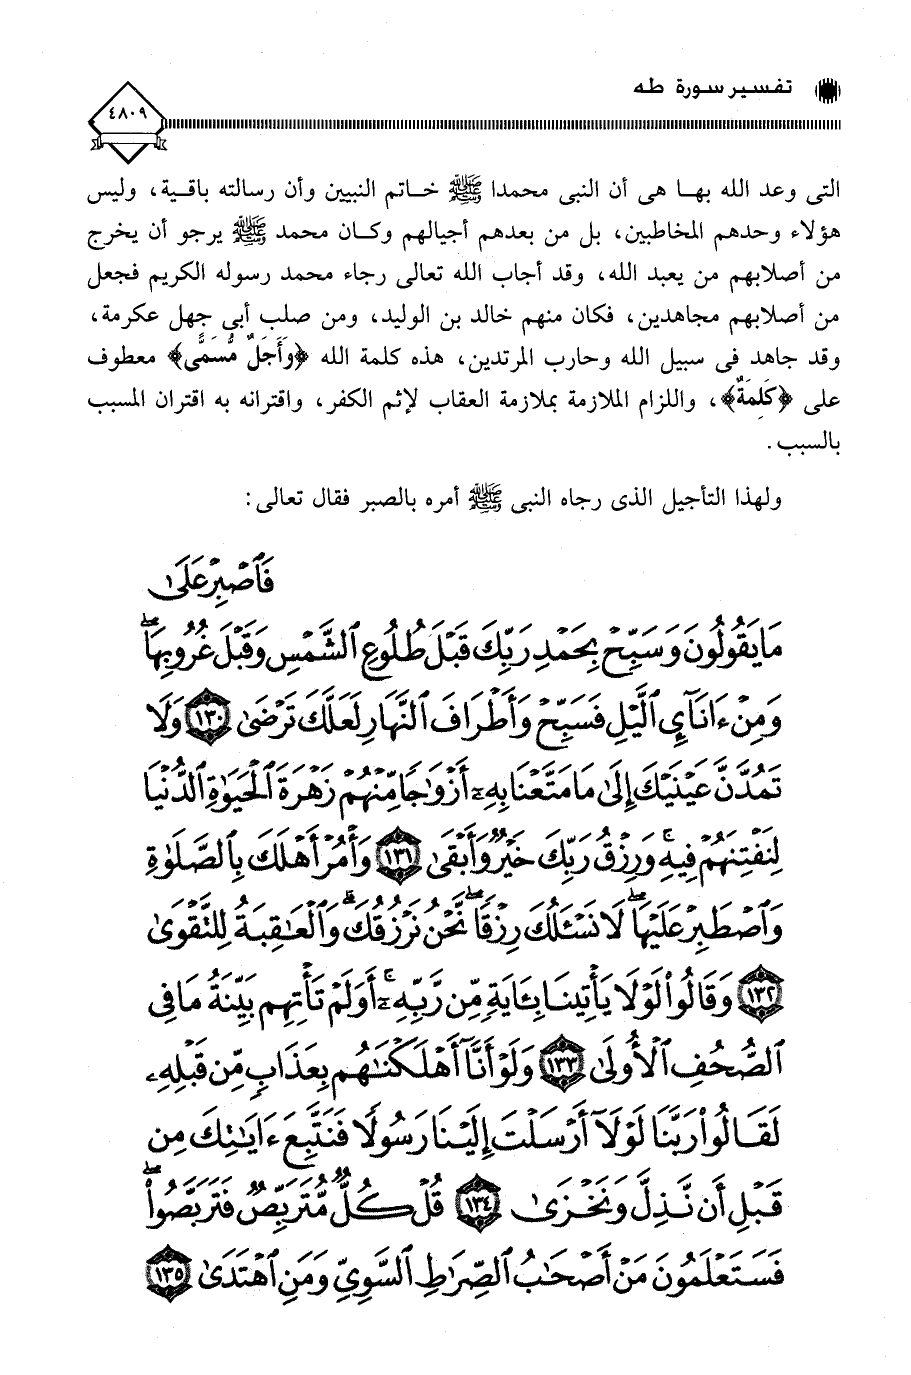 تفسير سورة طه
٤٨٠٩
التى وعد الله بها هى أن النبى محمدا ﷺ خاتم النبيين وأن رسالته باقية، وليس
هؤلاء وحدهم المخاطبين، بل من بعدهم أجيالهم وكان محمد ﷺ يرجو أن يخرج
من أصلابهم من يعبد الله، وقد أجاب الله تعالى رجاء محمد رسوله الكريم فجعل
من أصلابهم مجاهدين، فكان منهم خالد بن الوليد، ومن صلب أبى جهل عكرمة،
وقد جاهد فى سبيل الله وحارب المرتدين، هذه كلمة الله ﴿وَأَجَلٌ مُّسَمًّى﴾ معطوف
على ﴿كَلِمَةٌ﴾، واللزام الملازمة بملازمة العقاب لإثم الكفر، واقترانه به اقتران المسبب
بالسبب.
ولهذا التأجيل الذى رجاه النبى ﷺ أمره بالصبر فقال تعالى:
فَٱصْبِرْ عَلَىٰ
مَا يَقُولُونَ وَسَبِّحْ بِحَمْدِ رَبِّكَ قَبْلَ طُلُوعِ ٱلشَّمْسِ وَقَبْلَ غُرُوبِهَا ۖ
وَمِنْ ءَانَآئِ ٱلَّيْلِ فَسَبِّحْ وَأَطْرَافَ ٱلنَّهَارِ لَعَلَّكَ تَرْضَىٰ ١٣٠ وَلَا
تَمُدَّنَّ عَيْنَيْكَ إِلَىٰ مَا مَتَّعْنَا بِهِۦٓ أَزْوَٰجًا مِّنْهُمْ زَهْرَةَ ٱلْحَيَوٰةِ ٱلدُّنْيَا
لِنَفْتِنَهُمْ فِيهِ ۚ وَرِزْقُ رَبِّكَ خَيْرٌ وَأَبْقَىٰ ١٣١ وَأْمُرْ أَهْلَكَ بِٱلصَّلَوٰةِ
وَٱصْطَبِرْ عَلَيْهَا ۖ لَا نَسْـَٔلُكَ رِزْقًا ۖ نَّحْنُ نَرْزُقُكَ ۗ وَٱلْعَـٰقِبَةُ لِلتَّقْوَىٰ
١٣٢ وَقَالُوا۟ لَوْلَا يَأْتِينَا بِـَٔايَةٍ مِّن رَّبِّهِۦٓ ۚ أَوَلَمْ تَأْتِهِم بَيِّنَةُ مَا فِى
ٱلصُّحُفِ ٱلْأُولَىٰ ١٣٣ وَلَوْ أَنَّآ أَهْلَكْنَـٰهُم بِعَذَابٍ مِّن قَبْلِهِۦ
لَقَالُوا۟ رَبَّنَا لَوْلَآ أَرْسَلْتَ إِلَيْنَا رَسُولًا فَنَتَّبِعَ ءَايَـٰتِكَ مِن
قَبْلِ أَن نَّذِلَّ وَنَخْزَىٰ ١٣٤ قُلْ كُلٌّ مُّتَرَبِّصٌ فَتَرَبَّصُوا۟ ۖ
فَسَتَعْلَمُونَ مَنْ أَصْحَـٰبُ ٱلصِّرَٰطِ ٱلسَّوِىِّ وَمَنِ ٱهْتَدَىٰ ١٣٥